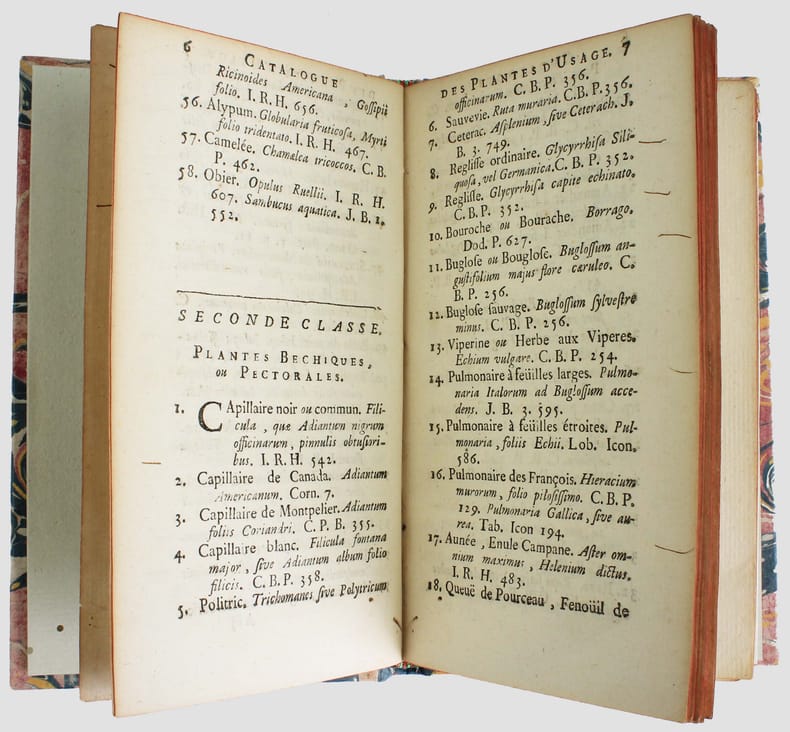 6 CATALOGUE
Ricinoides Americana, Gossipii
folio. I. R. H. 656.
56. Alypum. Globularia fruticosa, Myrti
folio tridentato. I. R. H. 467.
57. Camelée. Chamalea tricoccos. C. B.
P. 462.
58. Obier. Opulus Ruellii. I. R. H.
607. Sambucus aquatica. J. B. 1.
552.
SECONDE CLASSE.
PLANTES BECHIQUES,
ou PECTORALES.
1. CApillaire noir ou commun. Fili-
cula, quæ Adiantum nigrum
officinarum, pinnulis obtusiori-
bus. I. R. H. 542.
2. Capillaire de Canada. Adiantum
Americanum. Corn. 7.
3. Capillaire de Montpelier. Adiantum
foliis Coriandri. C. P. B. 355.
4. Capillaire blanc. Filicula fontana
major, sive Adiantum album folio
filicis. C. B. P. 358.
5. Politric. Trichomanes sive Polytricum
DES PLANTES D'USAGE. 7
officinarum. C. B. P. 356.
6. Sauvevie. Ruta muraria. C. B. P. 356.
7. Ceterac. Asplenium, sive Ceterach. J.
B. 3. 749.
8. Reglisse ordinaire. Glycyrrhisa Sili-
quosa, vel Germanica. C. B. P. 352.
9. Reglisse. Glycyrrhisa capite echinato.
C. B. P. 352.
10. Bouroche ou Bourache. Borrago.
Dod. P. 627.
11. Buglose ou Bouglose. Buglossum an-
gustifolium majus flore caruleo. C.
B. P. 256.
12. Buglose sauvage. Buglossum sylvestre
minus. C. B. P. 256.
13. Viperine ou Herbe aux Viperes.
Echium vulgare. C. B. P. 254.
14. Pulmonaire à feüilles larges. Pulmo-
naria Italorum ad Buglossum acce-
dens. J. B. 3. 595.
15. Pulmonaire à feüilles étroites. Pul-
monaria, foliis Echii. Lob. Icon.
586.
16. Pulmonaire des François. Hieracium
murorum, folio pilosissimo. C. B. P.
129. Pulmonaria Gallica, sive au-
rea. Tab. Icon 194.
17. Aunée, Enule Campane. Aster om-
nium maximus, Helenium dictus.
I. R. H. 483.
18. Queuë de Pourceau, Fenoüil de